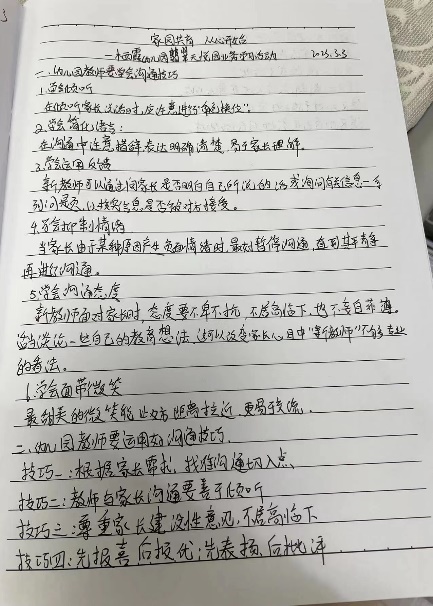 家园共育 从心开始
——木西霞幼儿园翡翠天悦园业务学习活动 2025.3.3
一、幼儿园教师要学会沟通技巧
1.学会倾听
在倾听家长说话时,应注意进行"角色换位";
2.学会简化语言:
在沟通中注意措辞表达明确清楚,易于家长理解。
3.学会运用反馈
新教师可以通过问家长是否明白自己所说的话或询问有关信息一系
列问题员,以核实信息是否被对方接受。
4.学会抑制情绪
当家长由于某种原因产生负面情绪时,最好暂停沟通,直到其恢复
再进行沟通。
5.学会沟通态度
新教师面对家长时,态度要不卑不亢,不居高临下,也不妄自菲薄。
适当谈论一些自己的教育想法,还可以改变家长心目中"新教师"不够专业
的看法。
6.学会面带微笑
最甜美的微笑能让双方距离拉近,更易交流。
二、幼儿园教师要运用好沟通技巧
技巧一:根据家长需求,找准沟通切入点
技巧二:教师与家长沟通要善于倾听
技巧三:尊重家长建设性意见,不居高临下
技巧四:先报喜后报忧;先表扬后批评